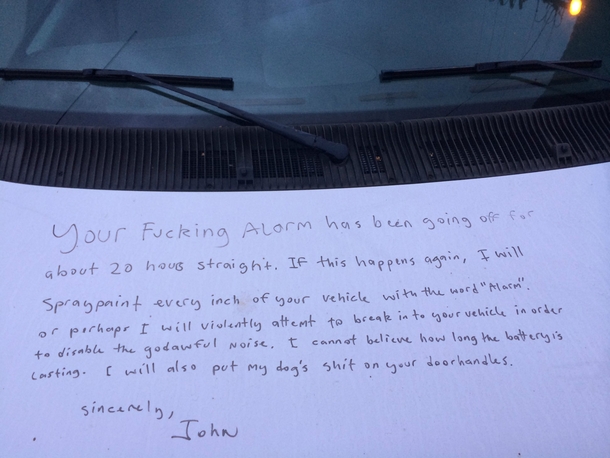 Your Fucking Alarm has been going off for
about 20 hours straight. IF this happens again, I will
Spraypaint every inch of your vehicle with the word "Alarm".
or perhaps I will violently attemt to break in to your vehicle in order
to disable the godawful noise. I cannot believe how long the battery is
lasting. I will also put my dog's shit on your doorhandles.
sincerely,
John